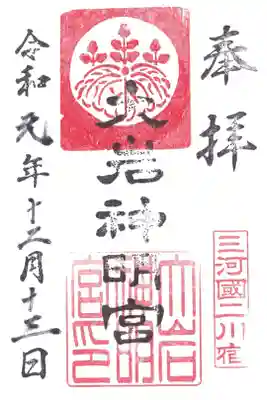 奉拝
三河國二川宿
大岩神明宮
大岩
神明
宮印
令和元年十二月十三日